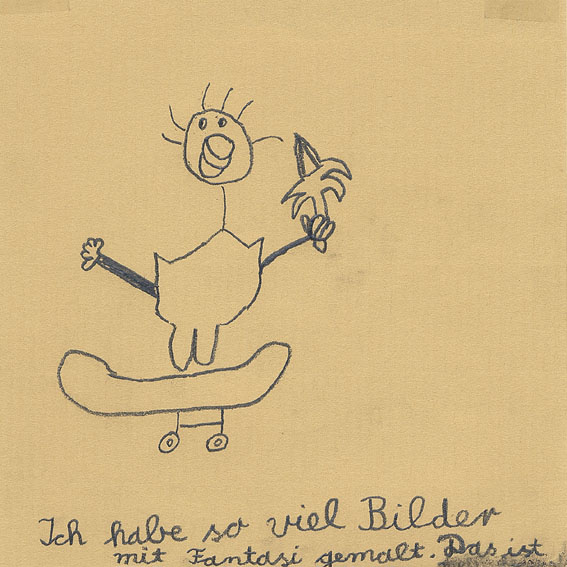 Ich habe so viel Bilder
mit Fantasi gemalt. Das ist